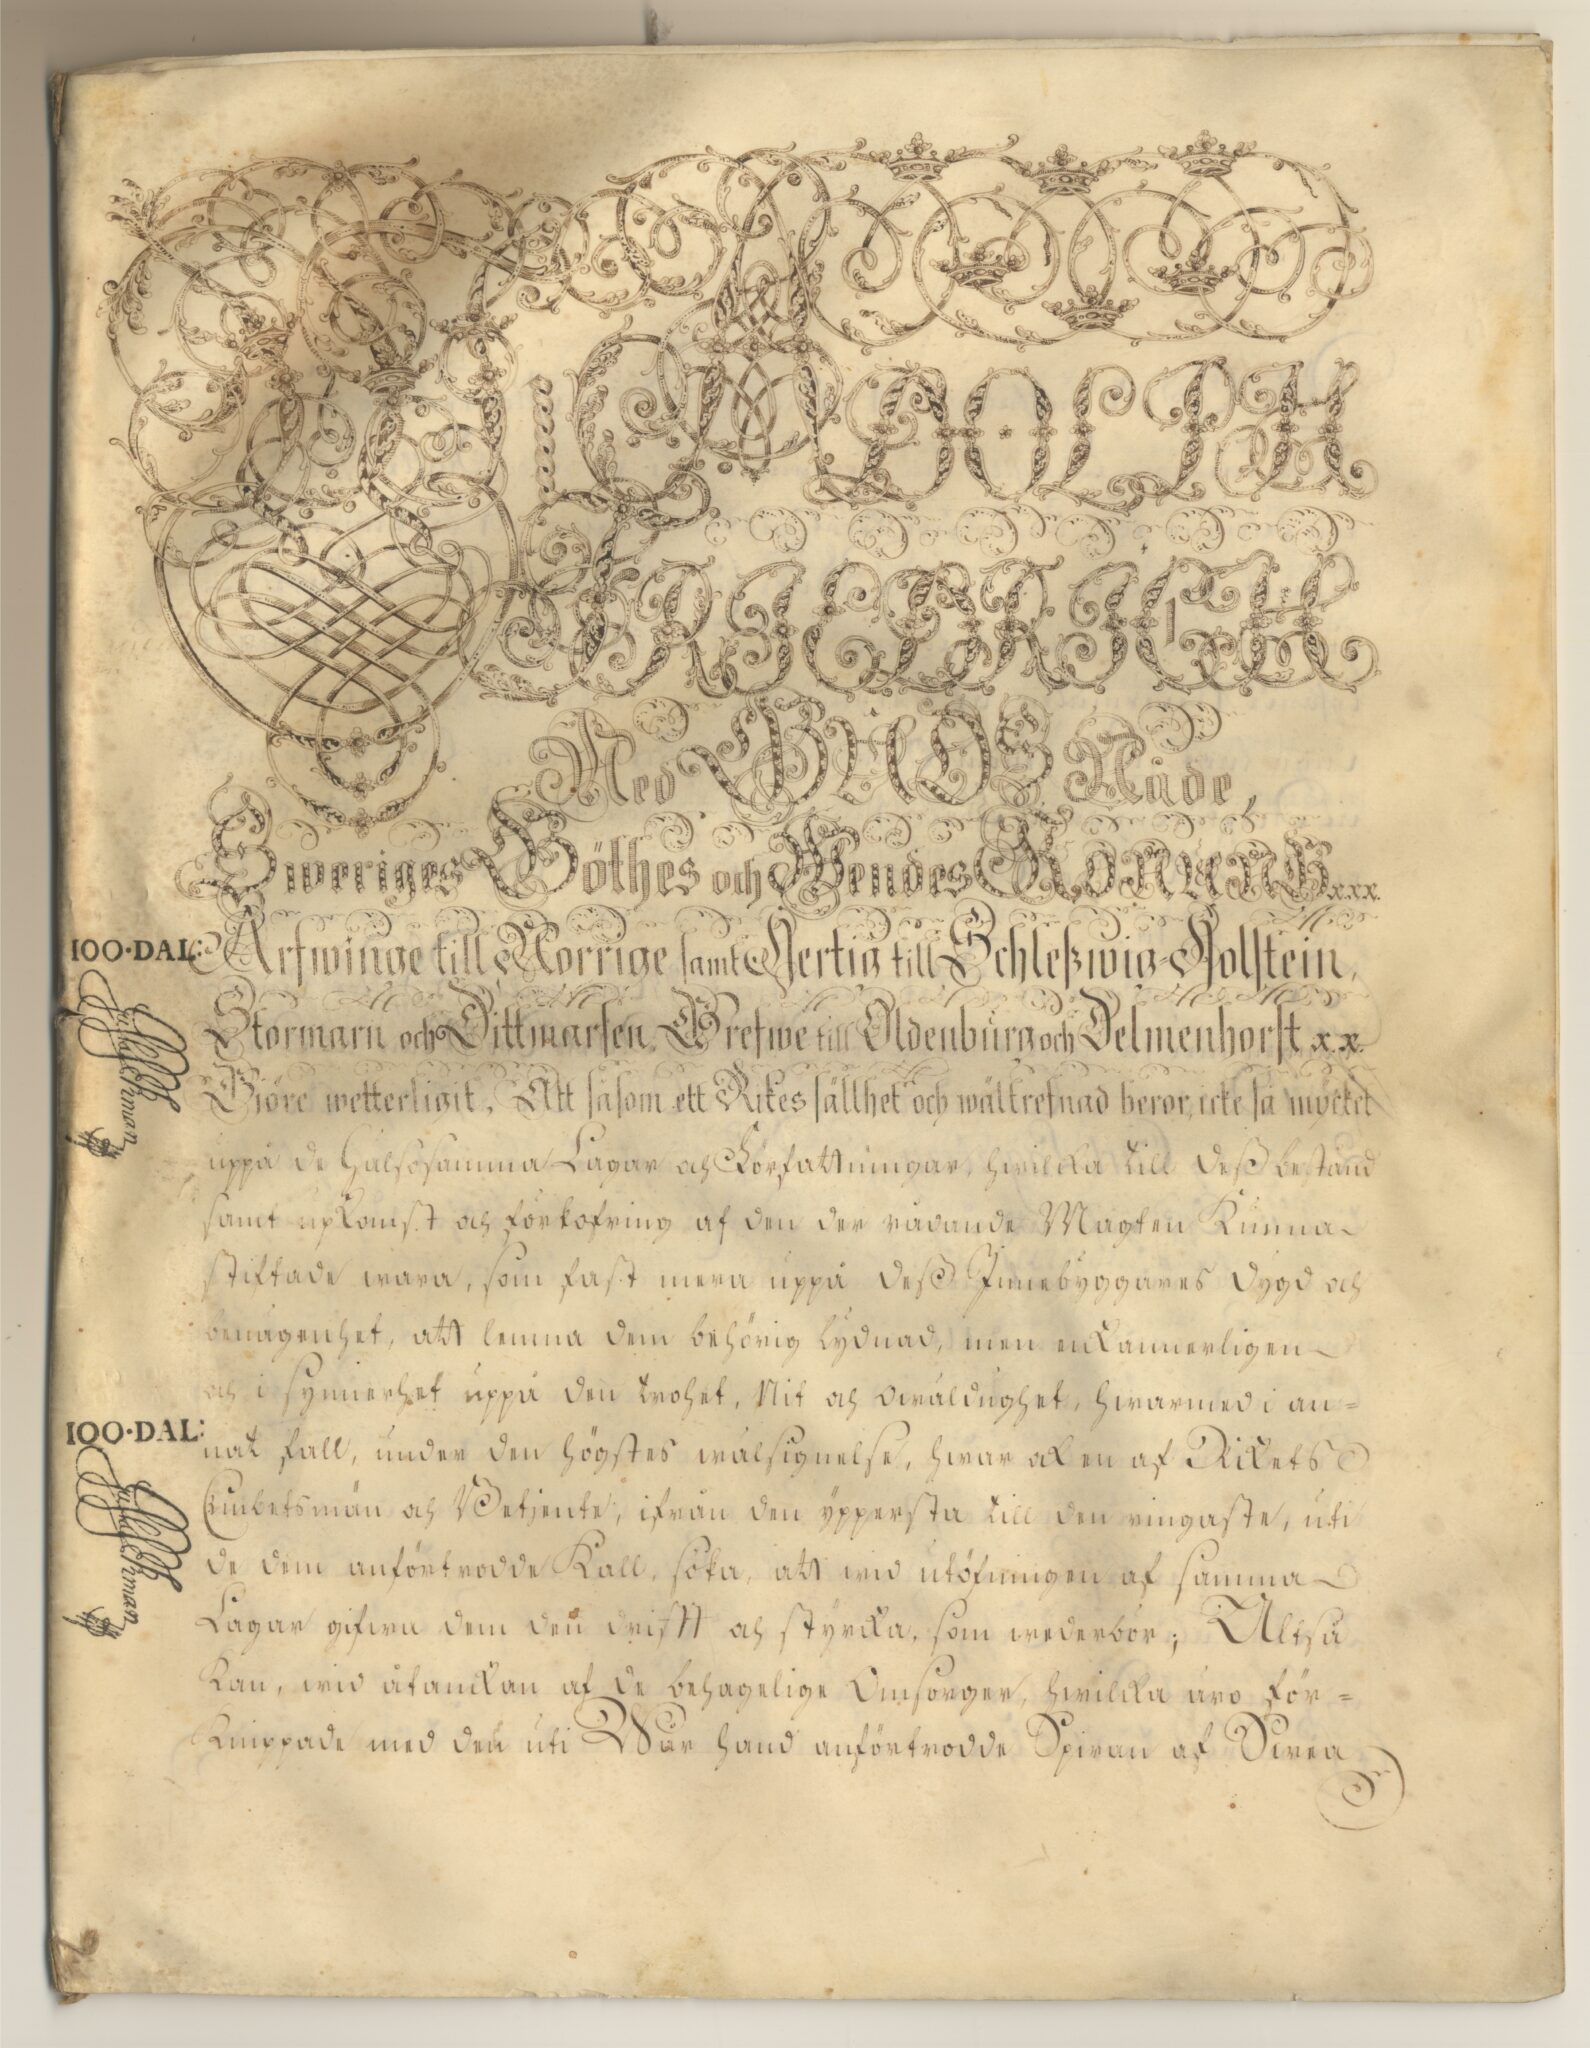 Wi ADOLPH
FRIEDRICH
Med GUDS Nåde,
Sweriges Göthes och Wendes KONUNG x.x.x.
Arfwinge till Norrige samt Hertig till Schleßwig-Holstein,
Stormarn och Dittmarsen, Grefwe till Oldenburg och Delmenhorst x.x.
Giöre wetterligit, Att såsom ett Rikes sällhet och wältrefnad beror, icke så mycket
uppå de hälsosamma Lagar och Författningar, hwilcka till deß bestånd
samt upkomst och förkofring af den der rådande Magten kunna
stiftade wara, som fast mera uppå deß Innebyggares dygd och
benägenhet, att lemna dem behörig lydnad, men enkannerligen
och i synnerhet uppå den trohet, Nit och owäldughet, hwarmed i an=
nat fall, under den högstes wälsignelse, hwar och en af Rikets
Embetsmän och Betjente, ifrån den yppersta till den ringaste, uti
de dem anförtrodde Kall, söka, att wid utöfningen af samma
Lagar gifwa dem den drift och styrcka, som wederbör; Altså
kan, wid åtanckan af de behagelige Omsorger, hwilcka äro för=
knippade med den uti Wår hand anförtrodde Spiran af Swea
100·DAL:
100·DAL: